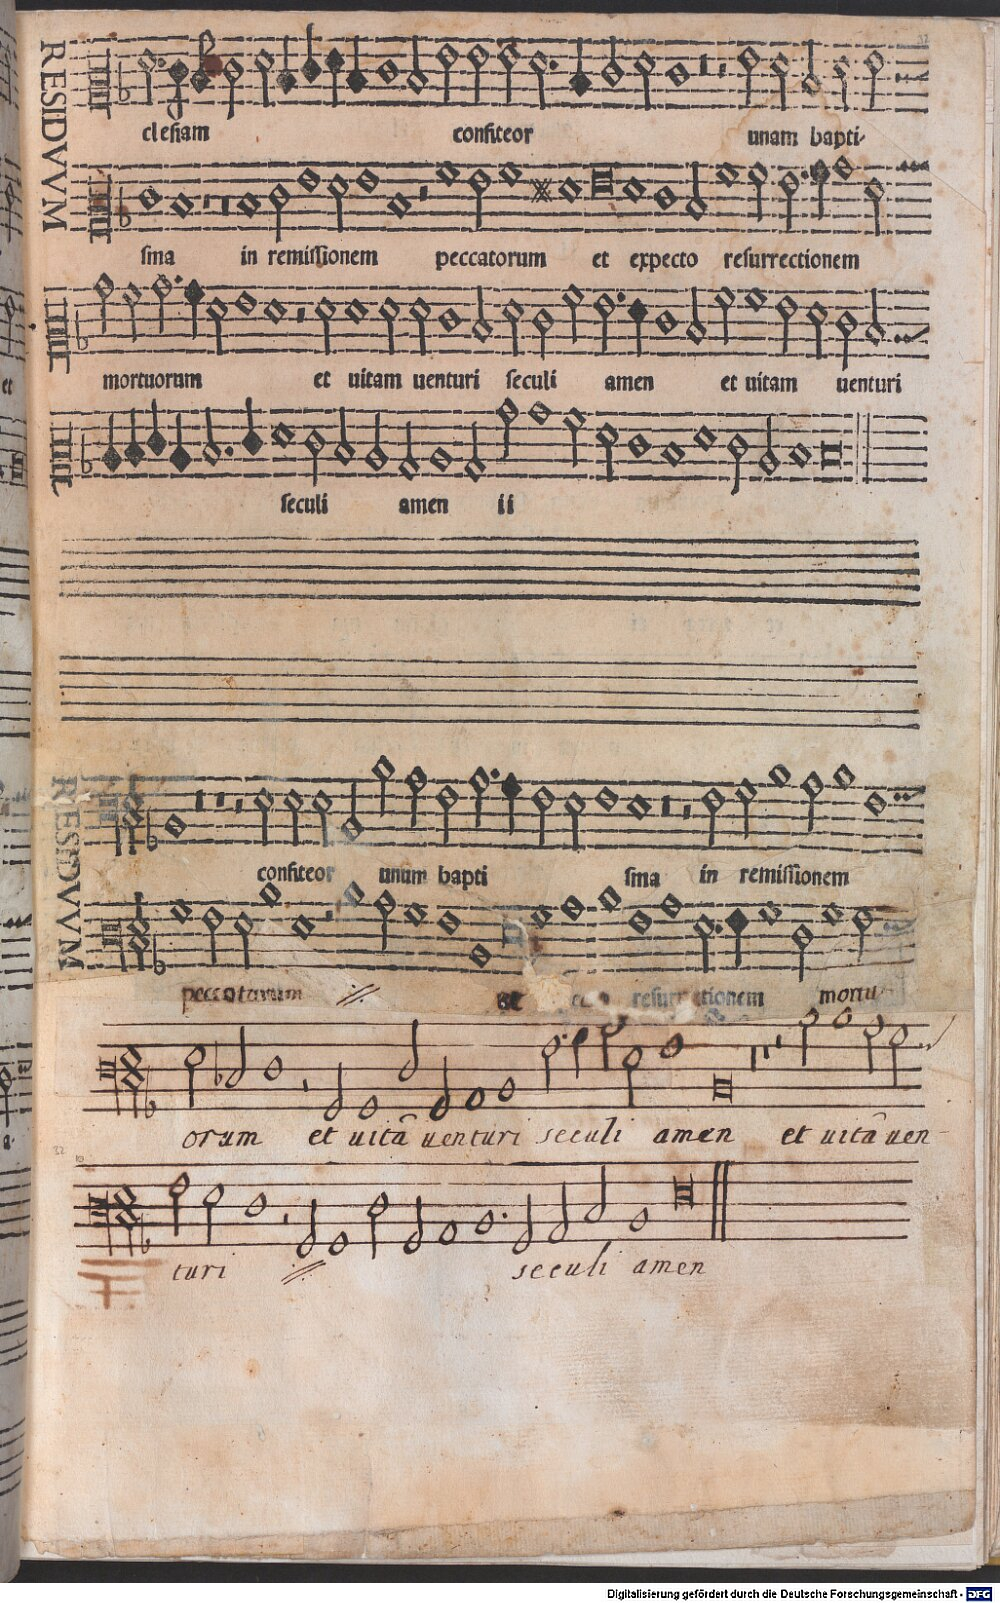 RESIDVVM
clesiam confiteor unam bapti-
sma in remissionem peccatorum et expecto resurrectionem
mortuorum et uitam uenturi seculi amen et uitam uenturi
seculi amen ii
RESIDVVM
confiteor unum bapti sma in remissionem
peccatorum et resurrectionem mortu
orum et uitã uenturi seculi amen et uitã uen-
turi seculi amen
et
a
32
Digitalisierung gefördert durch die Deutsche Forschungsgemeinschaft - DFG